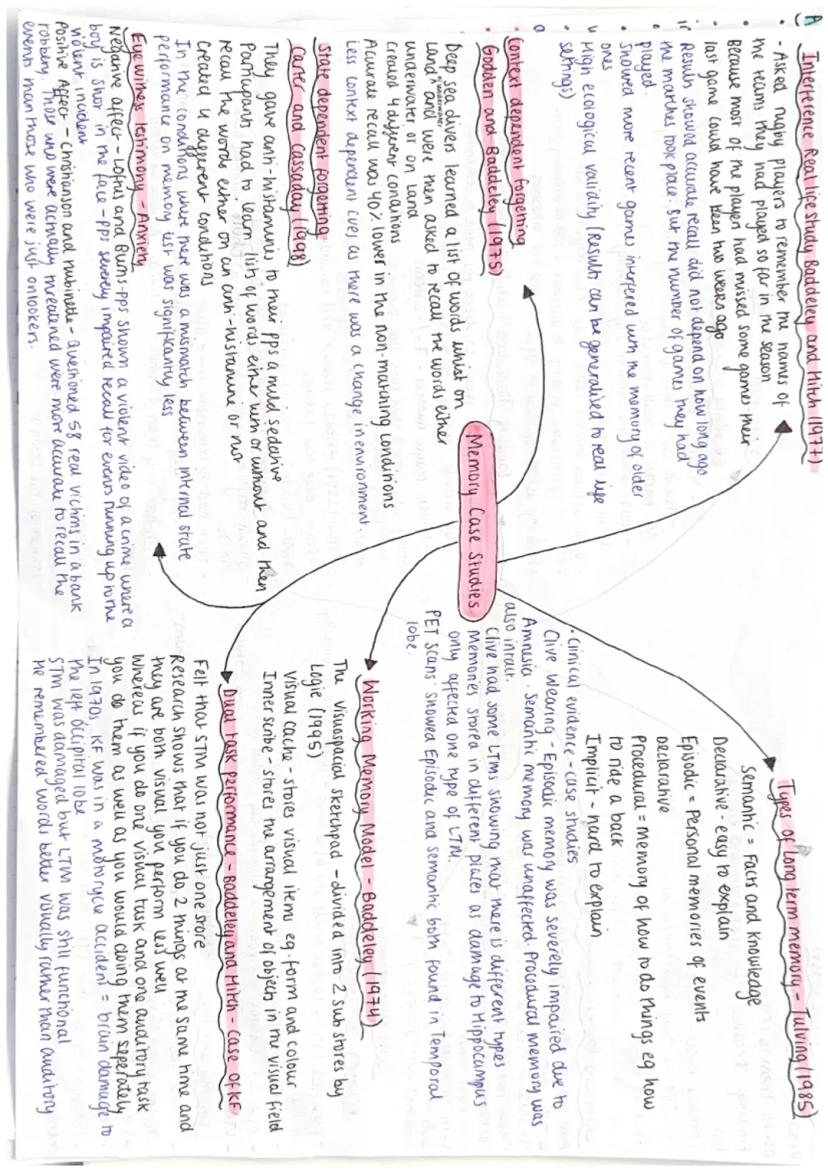 Memory Case Studies
Interference Real life study Baddeley and Hitch (1977)
- Asked rugby players to remember the names of
the teams they had played so far in the season
Because most of the players had missed some games their
last game could have been two weeks ago
Results showed accurate recall did not depend on how long ago
the matches took place. But the number of games they had
played.
Showed more recent games interfered with the memory of older
ones
High ecological validity (Results can be generalised to real life
settings)
Context dependent forgetting
Godden and Baddeley (1975)
Deep sea divers learned a list of words whilst on
Land or underwater and were then asked to recall the words either
underwater or on land
Created 4 different conditions
Accurate recall was 40% lower in the non-matching conditions
Less context dependent cues as there was a change in environment.
State dependent forgetting
Carter and Cassaday (1998)
They gave anti-histamines to their pps a mild sedative
Participants had to learn list of words either with or without and then
recall the words either on an anti-histamine or not
Created 4 different conditions
In the conditions where there was a mismatch between internal state
performance on memory test was significantly less
Eye witness testimony - Anxiety
Negative affect - Loftus and Burns-pps shown a violent video of a crime where a
boy is shot in the face - pps severely impaired recall for events running up to the
violent incident
Positive Affect - Christianson and Hubinette - Questioned 58 real victims in a bank
robbing. Those who were actually threatened were more accurate to recall the
events than those who were just onlookers.
Types of long term memory - Tulving (1985)
Semantic = Facts and knowledge
Declarative - easy to explain
Episodic = Personal memories of events
Declarative
Procedural = memory of how to do things eg how
to ride a back
Implicit - hard to explain
• Clinical evidence - case studies
Clive Wearing - Episodic memory was severely impaired due to
Amnesia. Semantic memory was unaffected. Procedural memory was
also intact.
Clive had some LTMs showing that there is different types
Memories stored in different places as damage to Hippocampus
only affected one type of LTM.
PET scans showed Episodic and Semantic both found in Temporal
lobe.
Working Memory Model - Baddeley (1974)
The visuospacial sketchpad - divided into 2 sub stores by
Logie (1995)
Visual cache - stores visual items eg. form and colour
Inner scribe - stores the arrangement of objects in the visual field
Dual task performance - Baddeley and Hitch - Case of KF
Felt that STM was not just one store
Research shows that if you do 2 things at the same time and
they are both visual you perform less well
Whereas if you do one visual task and one auditory task
you do them as well as you would doing them seperately
In 1970s, KF was in a motorcycle accident = brain damage to
the left occipital lobe
STM was damaged but LTM was still functional
He remembered words better visually rather than auditory